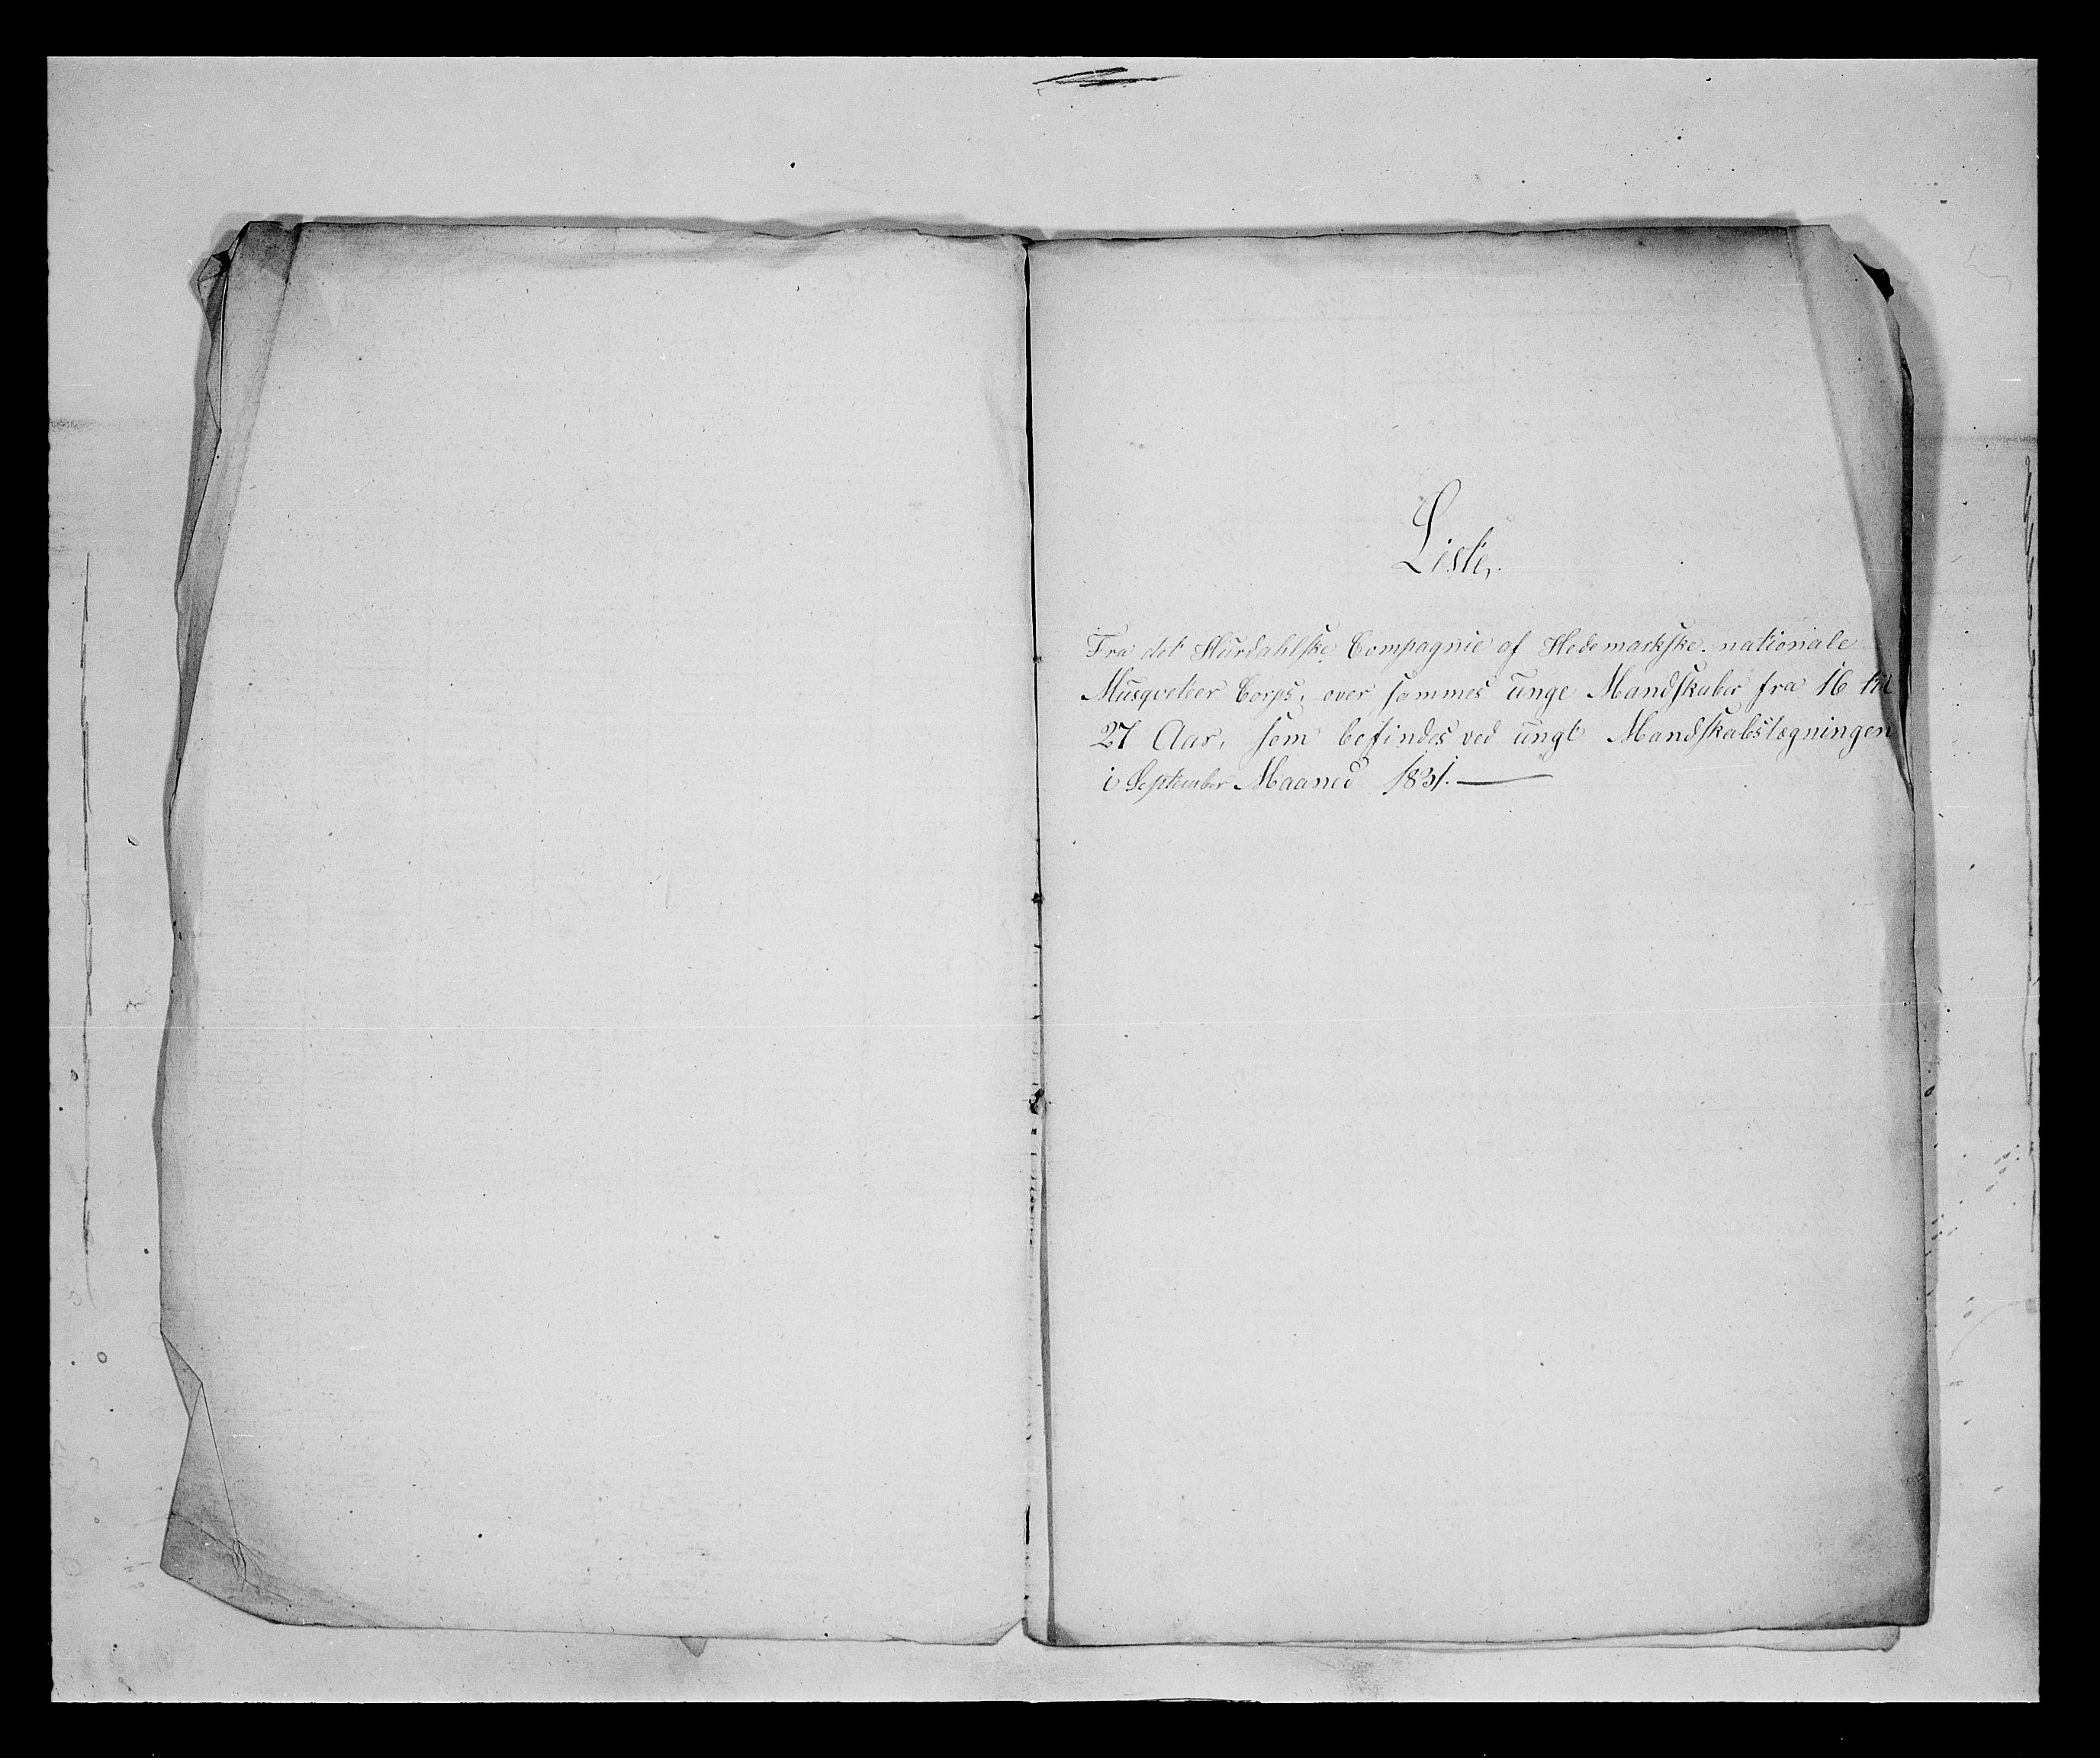 Liste,
Fra det Hurdahlske Compagnie af Hedemarkske nationale
Musqveteer Corps, over sammes unge Mandskaber fra 16 til
27 Aar, som befindes ved ungt Mandskabslægningen
i September Maaned 1831.—